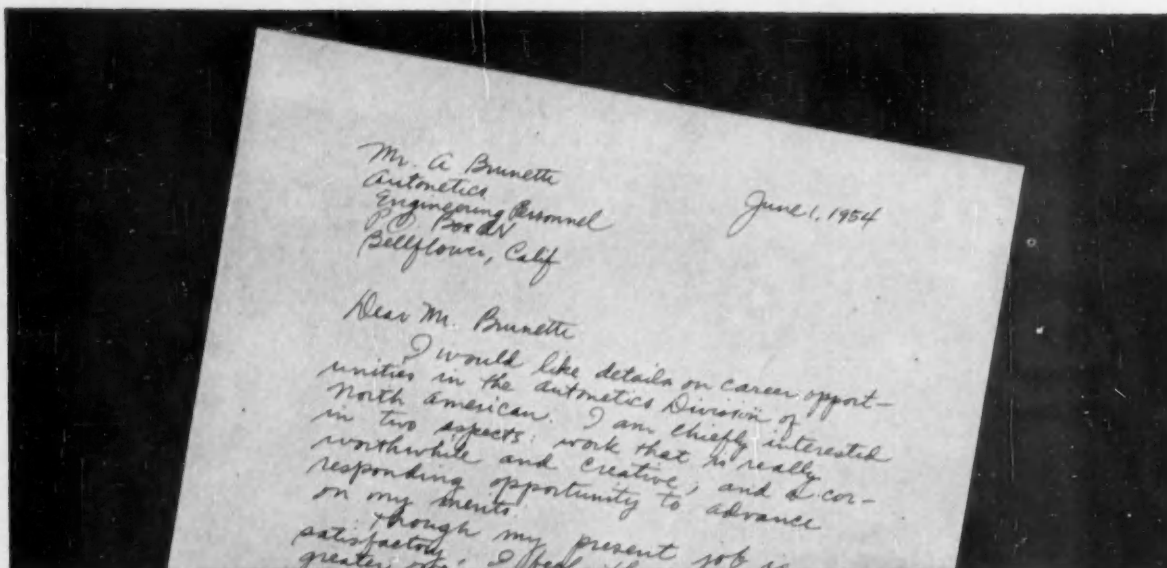 Mr. A Brunette
June 1, 1954
Autonetics
Engineering Personnel
P.O. Box AN
Bellflower, Calif
Dear Mr. Brunette
I would like details on career opport-
unities in the Autonetics Division of
North American. I am chiefly interested
in two aspects: work that is really
worthwhile and creative, and a cor-
responding opportunity to advance
on my merits.
Though my present job is
satisfactory, I feel
greater